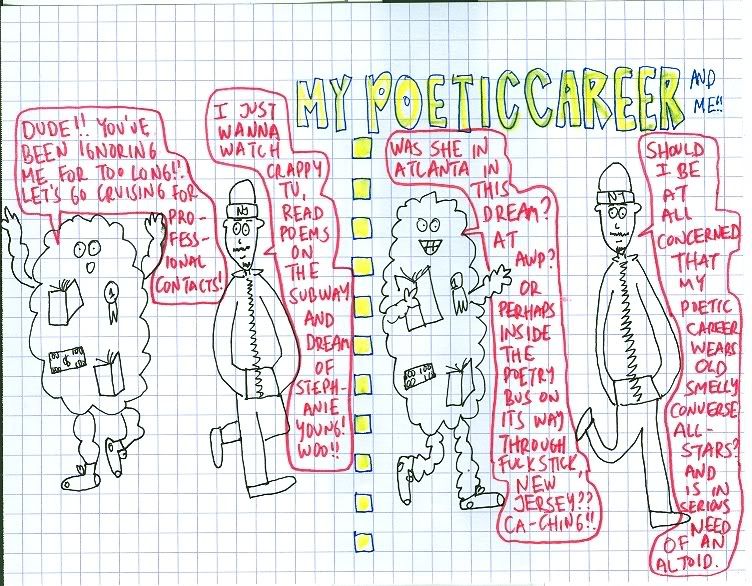 MY POETIC CAREER
AND
ME!!
DUDE!! YOU'VE
BEEN IGNORING
ME FOR TOO LONG!!
LET'S GO CRUISING FOR
PRO-
FESS-
IONAL
CONTACTS!
I JUST
WANNA
WATCH
CRAPPY
TV,
READ
POEMS
ON
THE
SUBWAY
AND
DREAM
OF
STEPH-
ANIE
YOUNG!
WOO!!
NJ
100 $ 100
WAS SHE IN
ATLANTA IN
THIS
DREAM?
AT
AWP?
OR
PERHAPS
INSIDE
THE
POETRY
BUS ON
ITS WAY
THROUGH
FUCKSTICK,
NEW
JERSEY??
CA-CHING!!
100 100
SHOULD
I BE
AT
ALL
CONCERNED
THAT
MY
POETIC
CAREER
WEARS
OLD
SMELLY
CONVERSE
ALL-
STARS?
AND
IS IN
SERIOUS
NEED
OF AN
ALTOID.
NJ